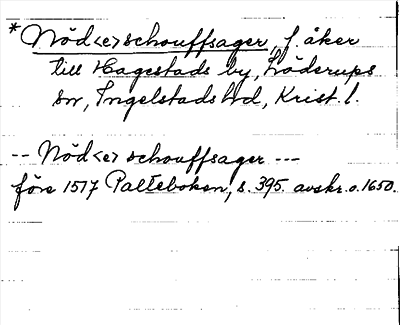 *Nöd<e>schouffsager, f. åker
till Hagestads by, Löderups
sn, Ingelstads hd, Krist. l.
-- Nöd<e> schouffsager ---
före 1517 Palteboken, s. 395. avskr. o. 1650.